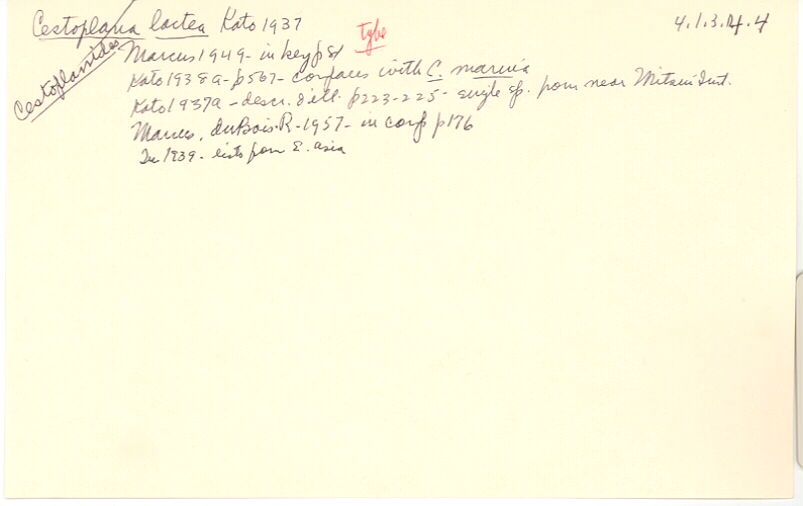 Cestoplana lactea Kato 1937
tybe
4.1.3.4.4
Cestoplanidae
Marcus 1949 - in key p 81
Kato 1938a - p 567 - compares with C. marina
Kato 1937a - descr. & ill. p 223-225 - single sp. from near Mitsui Inst.
Marcus, duBois-R - 1957 - in comp p 176
1939 - lists from E. Asia